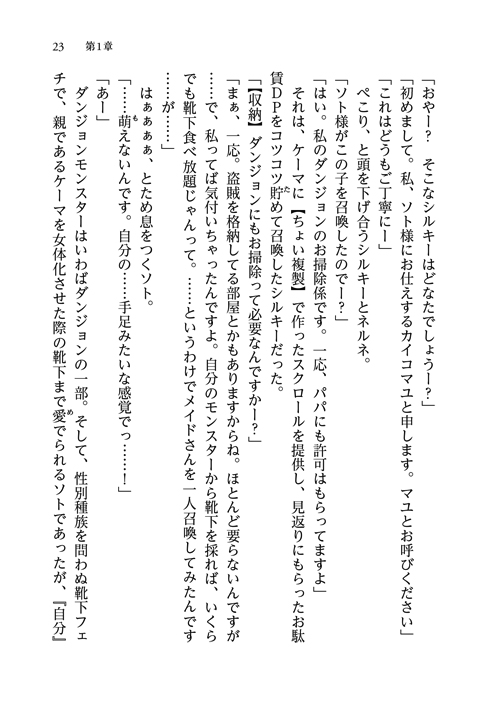 23　第1章
「おやー？　そこなシルキーはどなたでしょうー？」
「初めまして。私、ソト様にお仕えするカイコマユと申します。マユとお呼びください」
「これはどうもご丁寧にー」
ぺこり、と頭を下げ合うシルキーとネルネ。
「ソト様がこの子を召喚したのでー？」
「はい。私のダンジョンのお掃除係です。一応、パパにも許可はもらってますよ」
それは、ケーマに【ちょい複製】で作ったスクロールを提供し、見返りにもらったお駄
賃DPをコツコツ貯めて召喚したシルキーだった。
「【収納】ダンジョンにもお掃除って必要なんですかー？」
「まぁ、一応。盗賊を格納してる部屋とかもありますからね。ほとんど要らないんですが
……で、私ってば気付いちゃったんですよ。自分のモンスターから靴下を採れば、いくら
でも靴下食べ放題じゃんって。……というわけでメイドさんを一人召喚してみたんです
……が……」
はぁぁぁぁ、とため息をつくソト。
「……萌えないんです。自分の……手足みたいな感覚でっ……！」
「あー」
ダンジョンモンスターはいわばダンジョンの一部。そして、性別種族を問わぬ靴下フェ
チで、親であるケーマを女体化させた際の靴下まで愛でられるソトであったが、『自分』